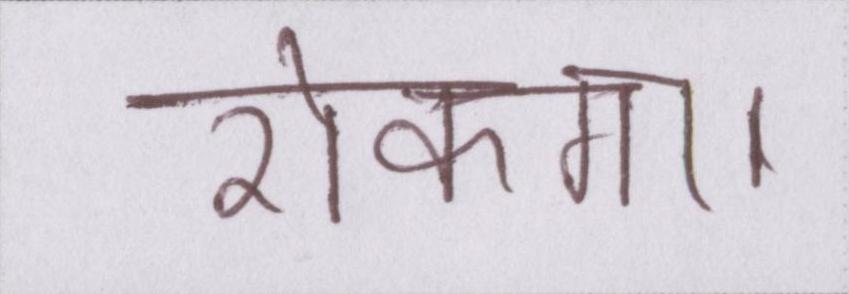 रोकगा।